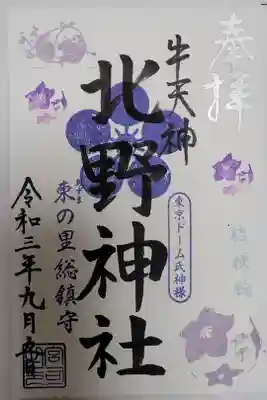 奉拝
牛天神
北野神社
東京ドーム氏神様
あずま
東の里総鎮守
令和三年九月